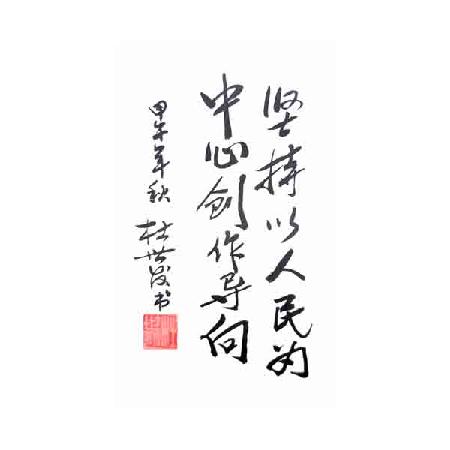 坚持以人民为
中心创作导向
甲午年秋 杜世茂书